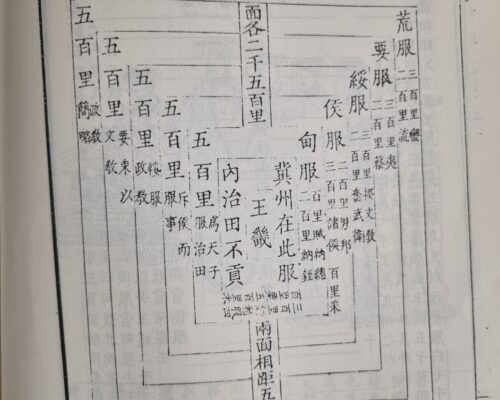 荒服
三百里蠻
二百里流
要服
三百里夷
二百里蔡
綏服
三百里揆文教
二百里奮武衛
侯服
百里采
二百里男邦
三百里諸侯
甸服
百里賦納總
二百里納銍
冀州在此服
面各二千五百里
王畿
兩面相距五
內治田不貢
五百里
爲天子
服治田
五百里
斥侯而
服事
五百里
綏服
政教
五百里
要束以
文教
五百里
政教
簡略